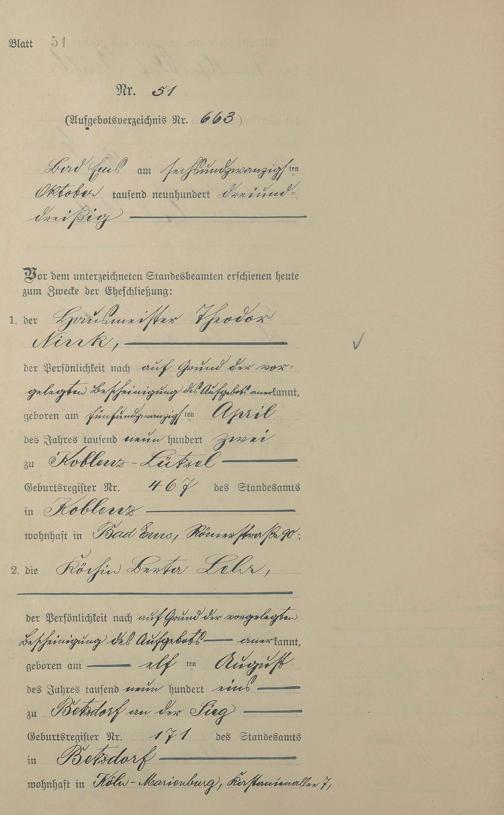 Blatt 51
Nr. 51
(Aufgebotsverzeichnis Nr. 663)
Bad Ems am sechsundzwanzigsten
Oktober tausend neunhundert dreiund-
dreißig
Vor dem unterzeichneten Standesbeamten erschienen heute
zum Zwecke der Eheschließung:
1. der Hausmeister Theodor
der Persönlichkeit nach auf Grund der vor-
gelegten Bescheinigung des Aufgebots anerkannt,
geboren am fünfundzwanzigsten April
des Jahres tausend neun hundert zwei
zu Koblenz-Lützel
Geburtsregister Nr. 467 des Standesamts
in Koblenz
wohnhaft in Bad Ems, Römerstraße 90;
2. die Köchin Berta
der Persönlichkeit nach auf Grund der vorgelegten
Bescheinigung des Aufgebots anerkannt,
geboren am elf ten August
des Jahres tausend neun hundert eins
zu Betzdorf an der Sieg
Geburtsregister Nr. 171 des Standesamts
in Betzdorf
wohnhaft in Köln-Marienburg, Kastanienallee 7,